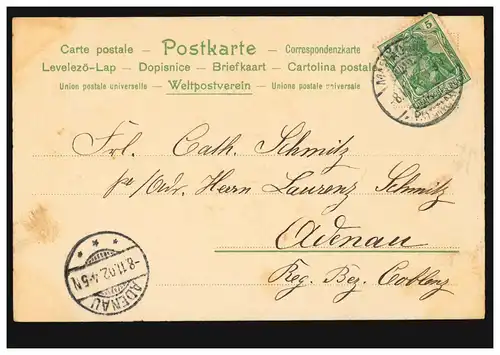 Carte postale – Postkarte – Correspondenzkarte
Levelezö-Lap – Dopisnice – Briefkaart – Cartolina postale
Union postale universelle – Weltpostverein – Unions postale universale
5
Frl. Cath. Schmitz
Herrn Laurenz Schmitz
Adenau
Reg. Bez. Coblenz
-8.11.02.4-5N
ADENAU